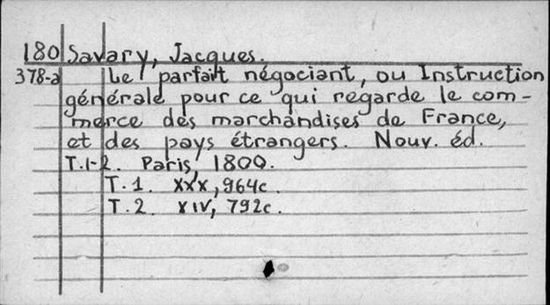 180 Savary, Jacques.
378-a Le parfait négociant, ou Instruction
générale pour ce qui regarde le com-
merce des marchandises de France,
et des pays étrangers. Nouv. éd.
T.1-2. Paris, 1800.
T.1. XXX, 964c.
T.2. XIV, 792c.